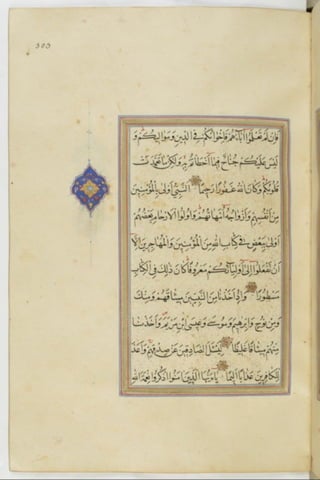 303
فَإِن لَّمْ تَعْلَمُوا آبَاءَهُمْ فَإِخْوَانُكُمْ فِي الدِّينِ وَمَوَالِيكُمْ وَ
لَيْسَ عَلَيْكُمْ جُنَاحٌ فِيمَا أَخْطَأْتُمْ بِهِ وَلَكِن مَا تَعَمَّدَتْ
قُلُوبُكُمْ وَكَانَ اللهُ غَفُورًا رَحِيمًا النَّبِيُّ أَوْلَى بِالْمُؤْمِنِينَ
مِنْ أَنْفُسِهِمْ وَأَزْوَاجُهُ أُمَّهَاتُهُمْ وَأُولُوا الْأَرْحَامِ بَعْضُهُمْ
أَوْلَى بِبَعْضٍ فِي كِتَابِ اللهِ مِنَ الْمُؤْمِنِينَ وَالْمُهَاجِرِينَ إِلَّا
أَنْ تَفْعَلُوا إِلَى أَوْلِيَائِكُمْ مَعْرُوفًا كَانَ ذَلِكَ فِي الْكِتَابِ
مَسْطُورًا وَإِذْ أَخَذْنَا مِنَ النَّبِيِّينَ مِيثَاقَهُمْ وَمِنْكَ
وَمِنْ نُوحٍ وَإِبْرَاهِيمَ وَمُوسَى وَعِيسَى ابْنِ مَرْيَمَ وَأَخَذْنَا
مِنْهُمْ مِيثَاقًا غَلِيظًا لِيَسْئَلَ الصَّادِقِينَ عَنْ صِدْقِهِمْ وَأَعَدَّ
لِلْكَافِرِينَ عَذَابًا أَلِيمًا يَا أَيُّهَا الَّذِينَ آمَنُوا اذْكُرُوا نِعْمَةَ اللهِ